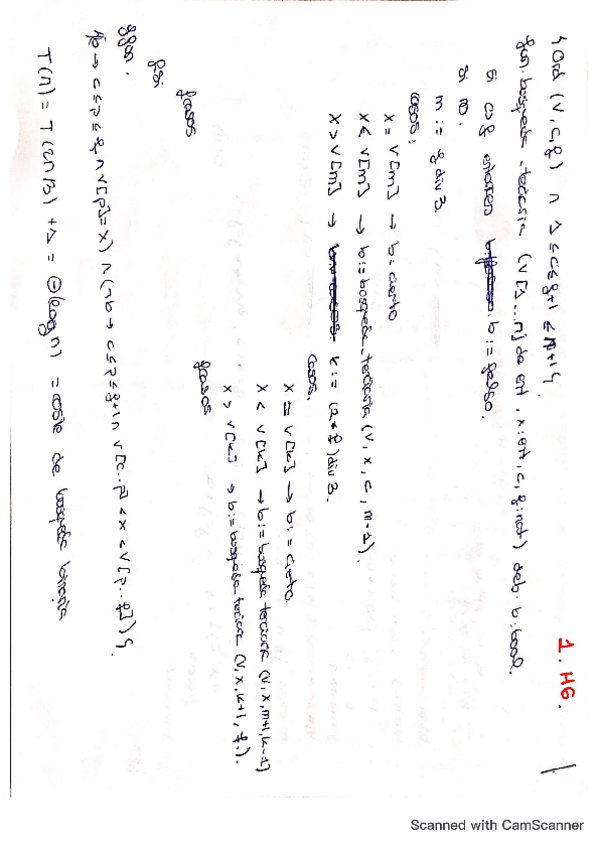 1. HG.
{ Ord (V, c, f) ∧ 1 ≤ c ≤ f+1 ≤ n+1 }.
fun. búsqueda_terciaria (V[1...n] de ent, x: ent, c, f: nat) dev. b: bool.
si c>f entonces b:= falso.
si no.
m := f div 3.
casos:
x = V[m] → b:= cierto
x < V[m] → b:= búsqueda_terciaria (V, x, c, m-1).
x > V[m] → k := (2*f) div 3.
casos.
x = V[k] → b:= cierto
x < V[k] → b:= búsqueda terciaria (V, x, m+1, k-1)
x > V[k] → b:= búsqueda_terciaria (V, x, k+1, f.).
fcasos
fcasos
fsi
ffun.
{(b → c ≤ p ≤ f ∧ V[p]=x) ∧ (¬b → c ≤ p ≤ f+1 ∧ V[c..p] < x < V[p..f]) }.
T(n) = T(2n/3) + 1 = Θ(log n) = coste de búsqueda binaria
Scanned with CamScanner